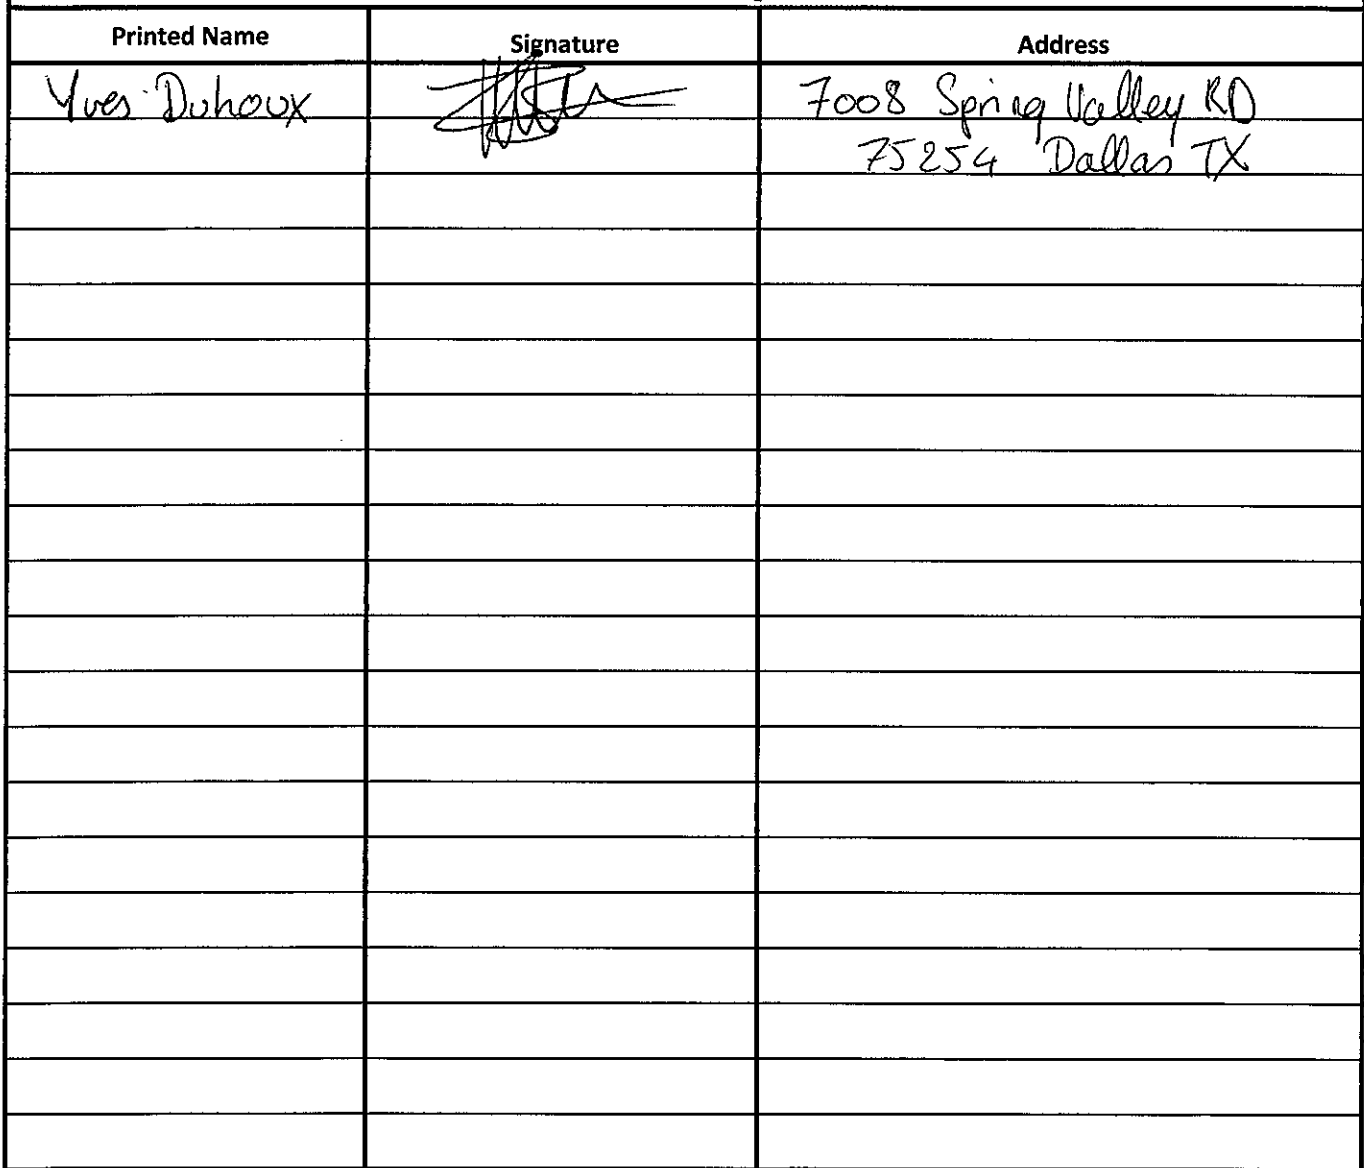 Printed Name Signature Address
Yves Duhoux 7008 Spring Valley RD
75254 Dallas TX